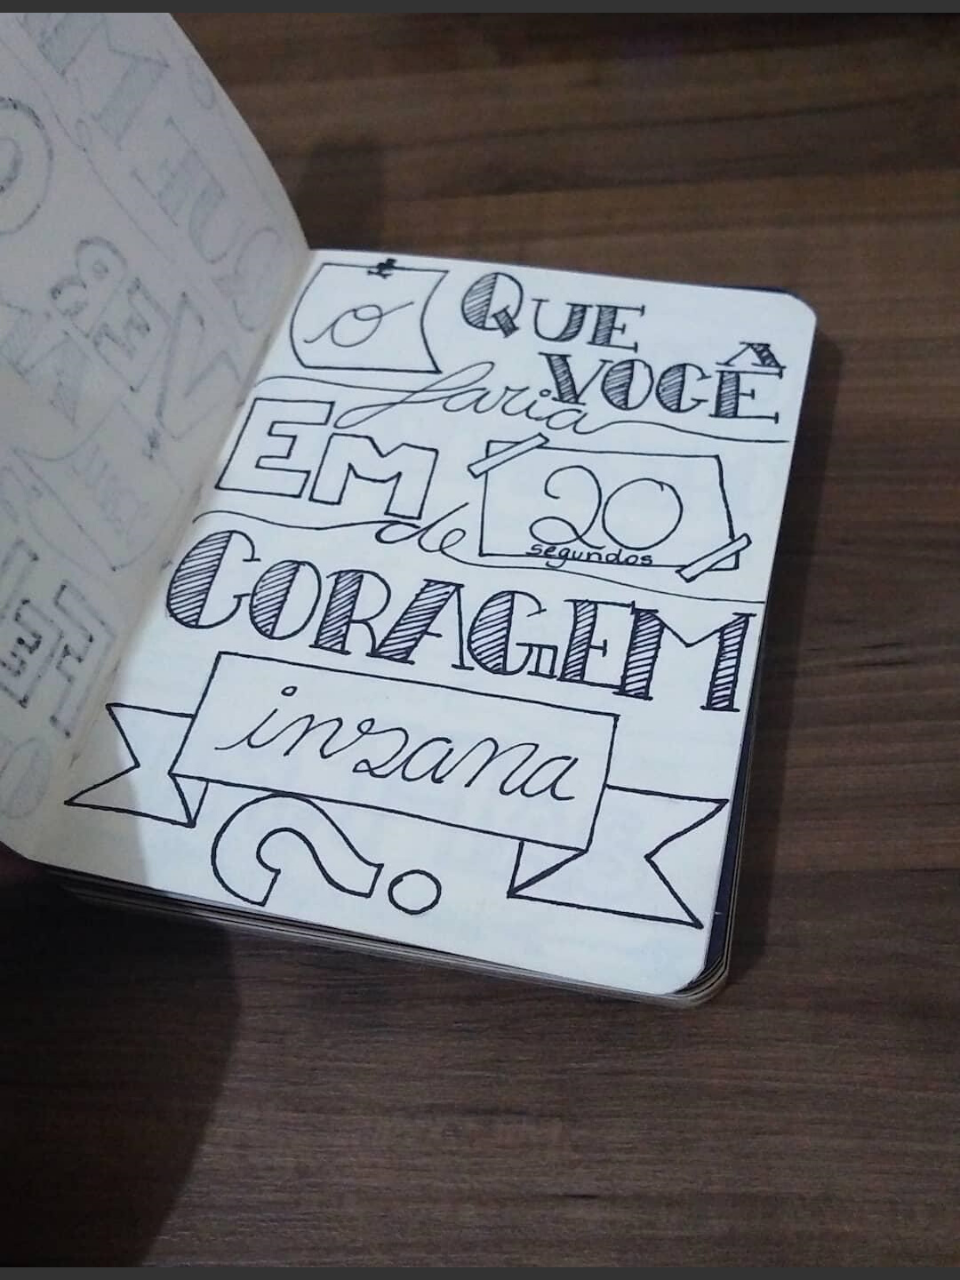 o QUE VOCÊ
faria
EM 20
segundos
de
CORAGEM
insana
?